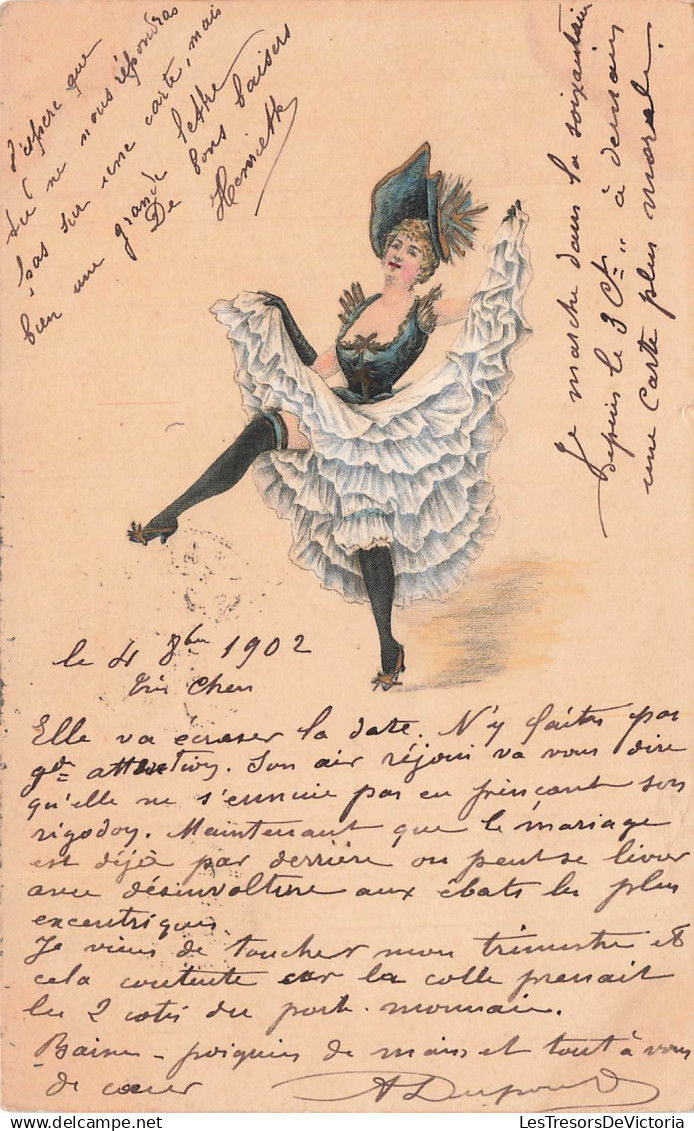 J'espère que
tu ne nous répondras
pas sur une carte, mais
bien une grande lettre
De bons baisers
Henriette
Je marche dans la soixantaine
depuis le 3 Ct " à demain
une carte plus morale.
le 4 8bre 1902
Très Chers
Elle va écraser la date. N'y faites pas
gde attention. Son air réjoui va vous dire
qu'elle ne s'ennuie pas en pinçant son
rigodon. Maintenant que le mariage
est déjà par derrière on peut se livrer
avec désinvolture aux ébats les plus
excentriques.
Je viens de toucher mon trimestre et
cela contente car la colle prenait
les 2 cotés du porte-monnaie.
Baisers - poignées de mains et tout à vous
de cœur A Dupond
© LesTresorsDeVictoria
LesTresorsDeVictoria